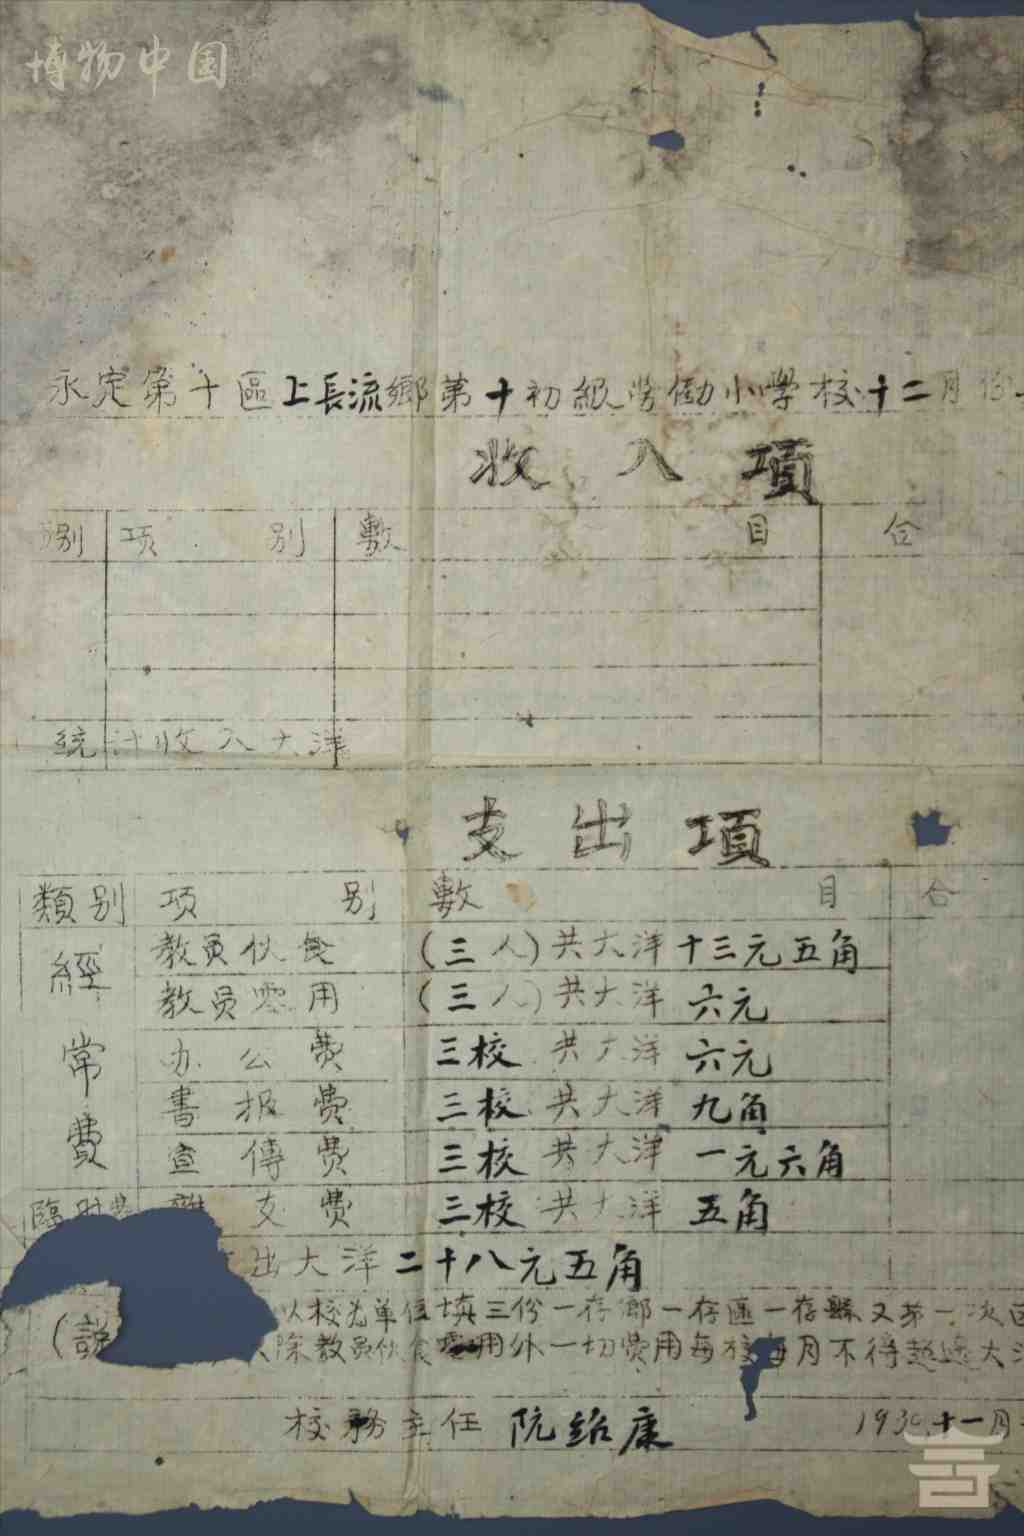 博物中国
永定第十區上長流鄉第十初級勞働小學校十二月份
收入項
別 項別 數目 合
統計收入大洋
支出項
類別 項別 數目 合
經常費
教員伙食 (三人)共大洋十三元五角
教員零用 (三人)共大洋六元
办公費 三校共大洋六元
書报費 三校共大洋九角
宣傳費 三校共大洋一元六角
臨时費 雜支費 三校共大洋五角
出大洋二十八元五角
(說 以校为单位填三份一存鄉一存區一存縣又第一次
除教員伙食零用外一切費用每校每月不得超過大洋
校務主任 阮紹康
193 十一月